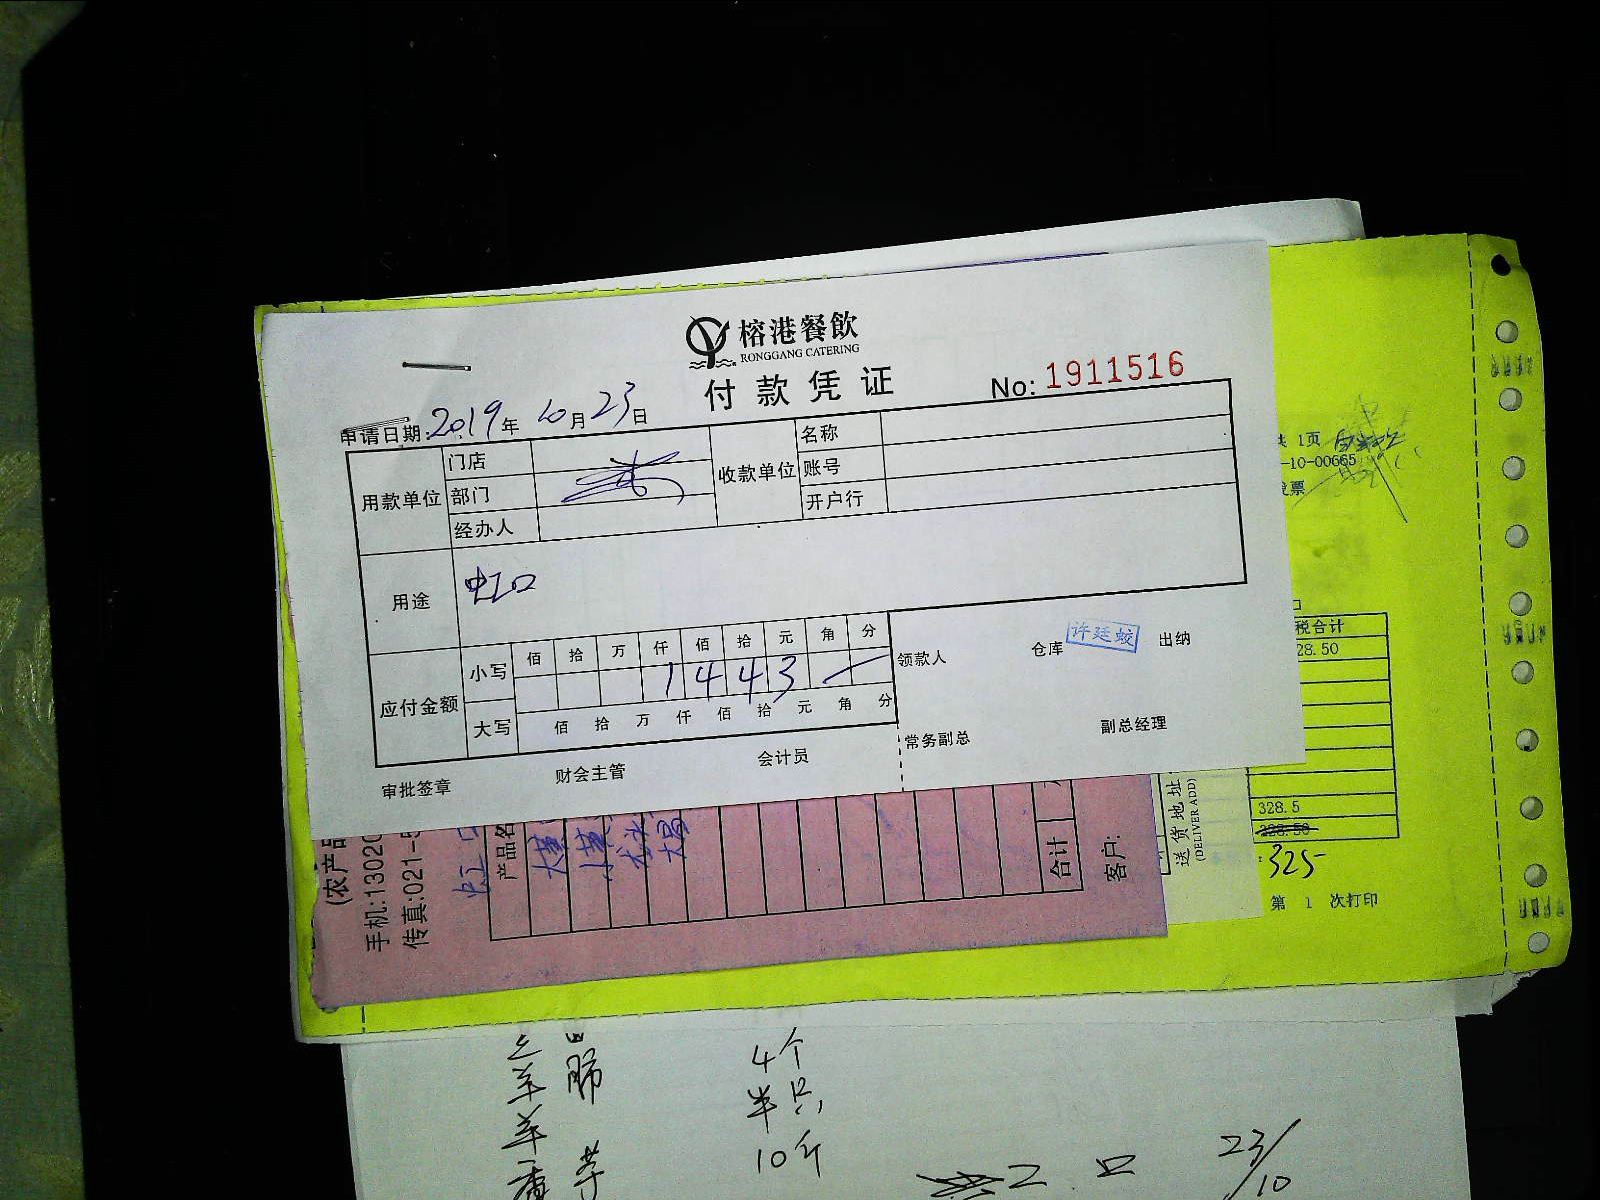 榕港餐飲
RONGGANG CATERING
付款凭证
No: 1911516
申请日期: 2019年 10月 23日
用款单位 门店 收款单位 名称
部门 账号
经办人 开户行
用途 虹口
应付金额 小写 佰 拾 万 仟 佰 拾 元 角 分
1 4 4 3 —
大写 佰 拾 万 仟 佰 拾 元 角 分
领款人 仓库 许廷蛟 出纳
常务副总 副总经理
审批签章 财会主管 会计员
共 1页
-10-00665
发票
口
税合计
28.50
328.5
328.50
325
第 1 次打印
送货地址
(DELIVER ADD)
(农产品
手机:13020
传真:021-5
虹口
产品名
合计
客户:
4个
羊 半只
羊 10斤
口 23/10